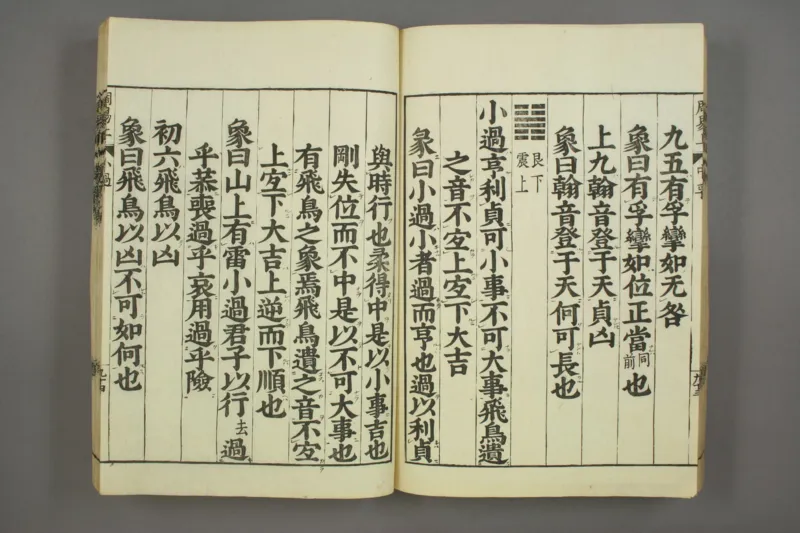 九五有孚攣如无咎
象曰有孚攣如位正當同前也
上九翰音登于天貞凶
象曰翰音登于天何可長也
艮下
震上
小過亨利貞可小事不可大事飛鳥遺
之音不宐上宐下大吉
彖曰小過小者過而亨也過以利貞
與時行也柔得中是以小事吉也
剛失位而不中是以不可大事也
有飛鳥之象焉飛鳥遺之音不宐
上宐下大吉上逆而下順也
象曰山上有雷小過君子以行去過
乎恭喪過乎哀用過乎險
初六飛鳥以凶
象曰飛鳥以凶不可如何也